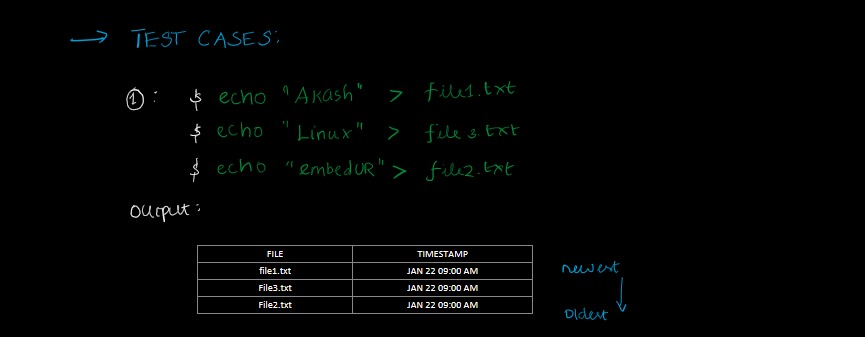 → TEST CASES:
①: $ echo "Akash" > file1.txt
$ echo "Linux" > file3.txt
$ echo "embedUR" > file2.txt
Output:
FILE TIMESTAMP
file1.txt JAN 22 09:00 AM
File3.txt JAN 22 09:00 AM
File2.txt JAN 22 09:00 AM
newest
Oldest